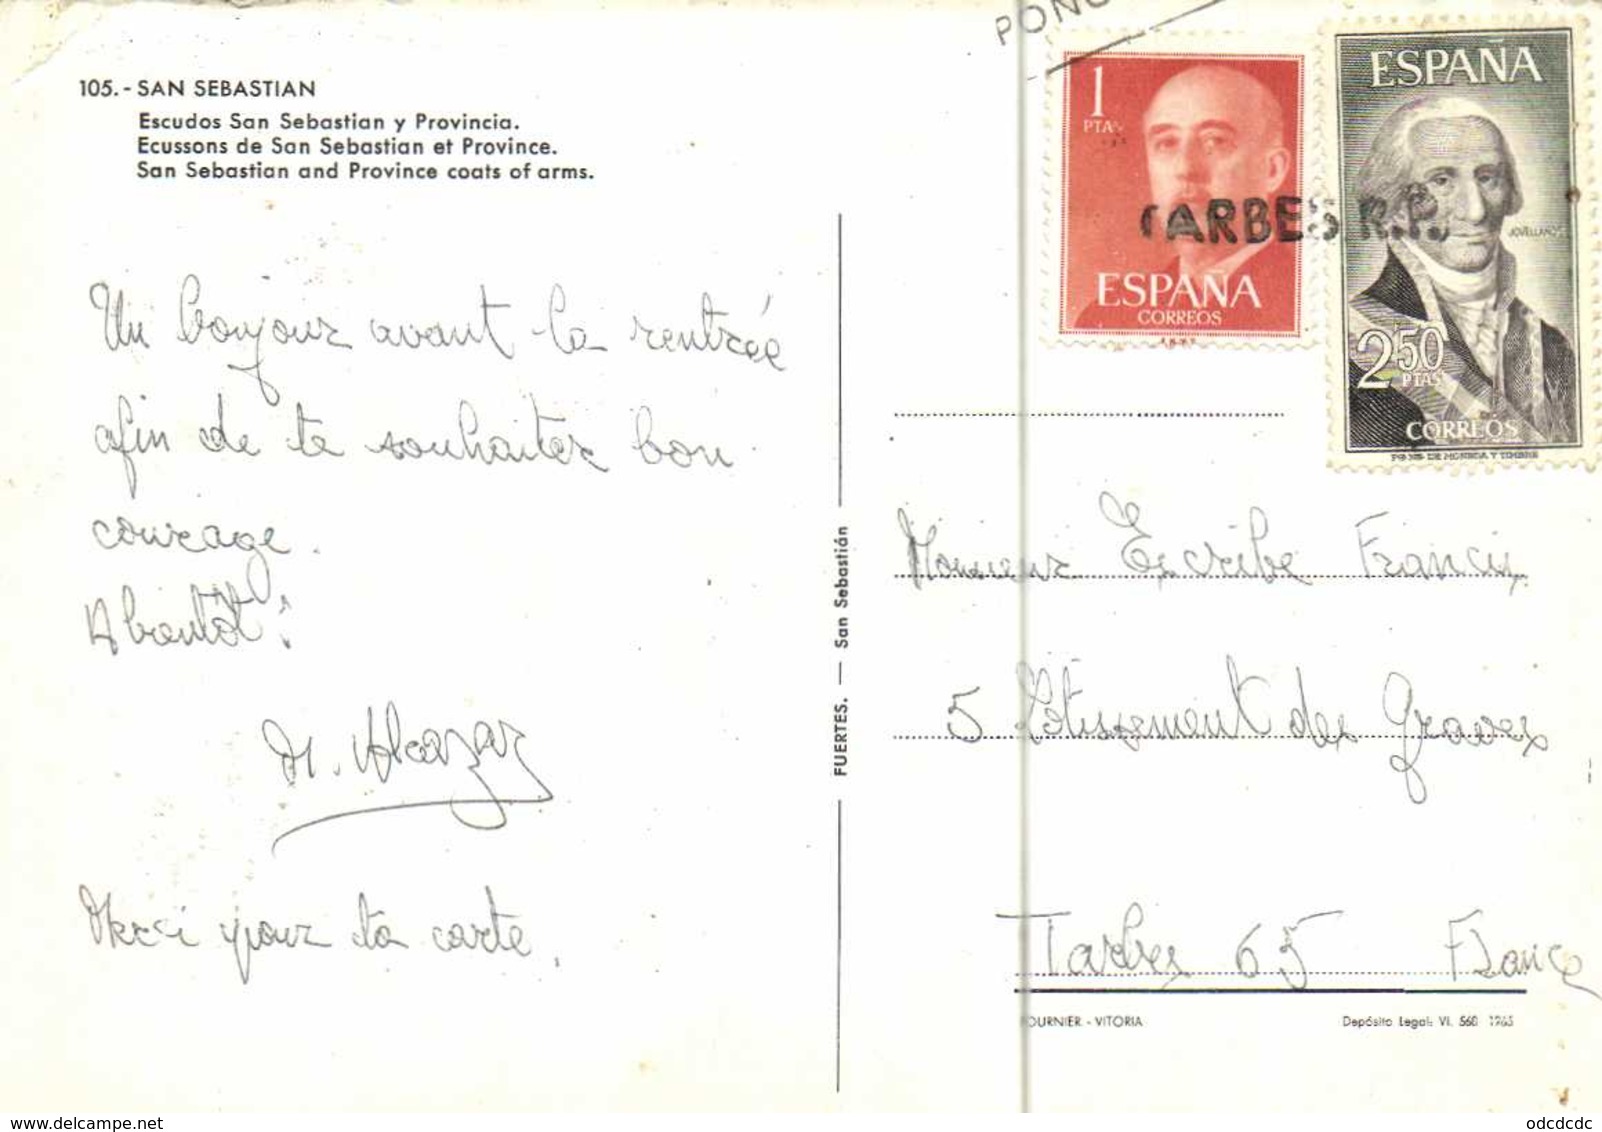 105.- SAN SEBASTIAN
Escudos San Sebastian y Provincia.
Ecussons de San Sebastian et Province.
San Sebastian and Province coats of arms.
Un bonjour avant la rentrée
afin de te souhaiter bon
courage.
A bientôt!
M. Alcazar
Merci pour ta carte.
FUERTES. — San Sebastián
1
PTA
ESPAÑA
CORREOS
ESPAÑA
JOVELLANOS
2'50
PTAS
CORREOS
TARBES R.P.
Monsieur Escribe Francis
5 Lotissement des Graves
Tarbes 65 France
FOURNIER - VITORIA
Depósito Legal: VI. 560 1965
www.delcampe.net
odcdcdc